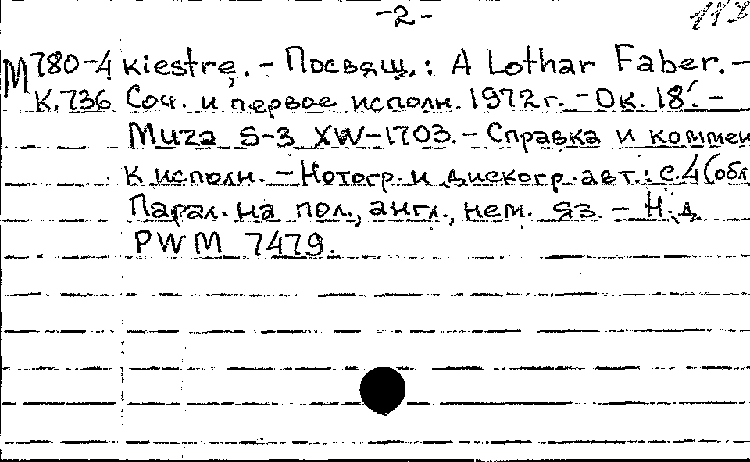 -2-
М 780-4 kiestrę. - Посвящ.: A Lothar Faber. -
К.736 Соч. и первое исполн. 1972 г. - Ок. 18'. -
Muza S-3 XW-1703. - Справка и коммен
к исполн. - Нотогр. и дискогр. авт.: с.4 (обл
Парал. на пол., англ., нем. яз. - Н.д.
PWM 7479.